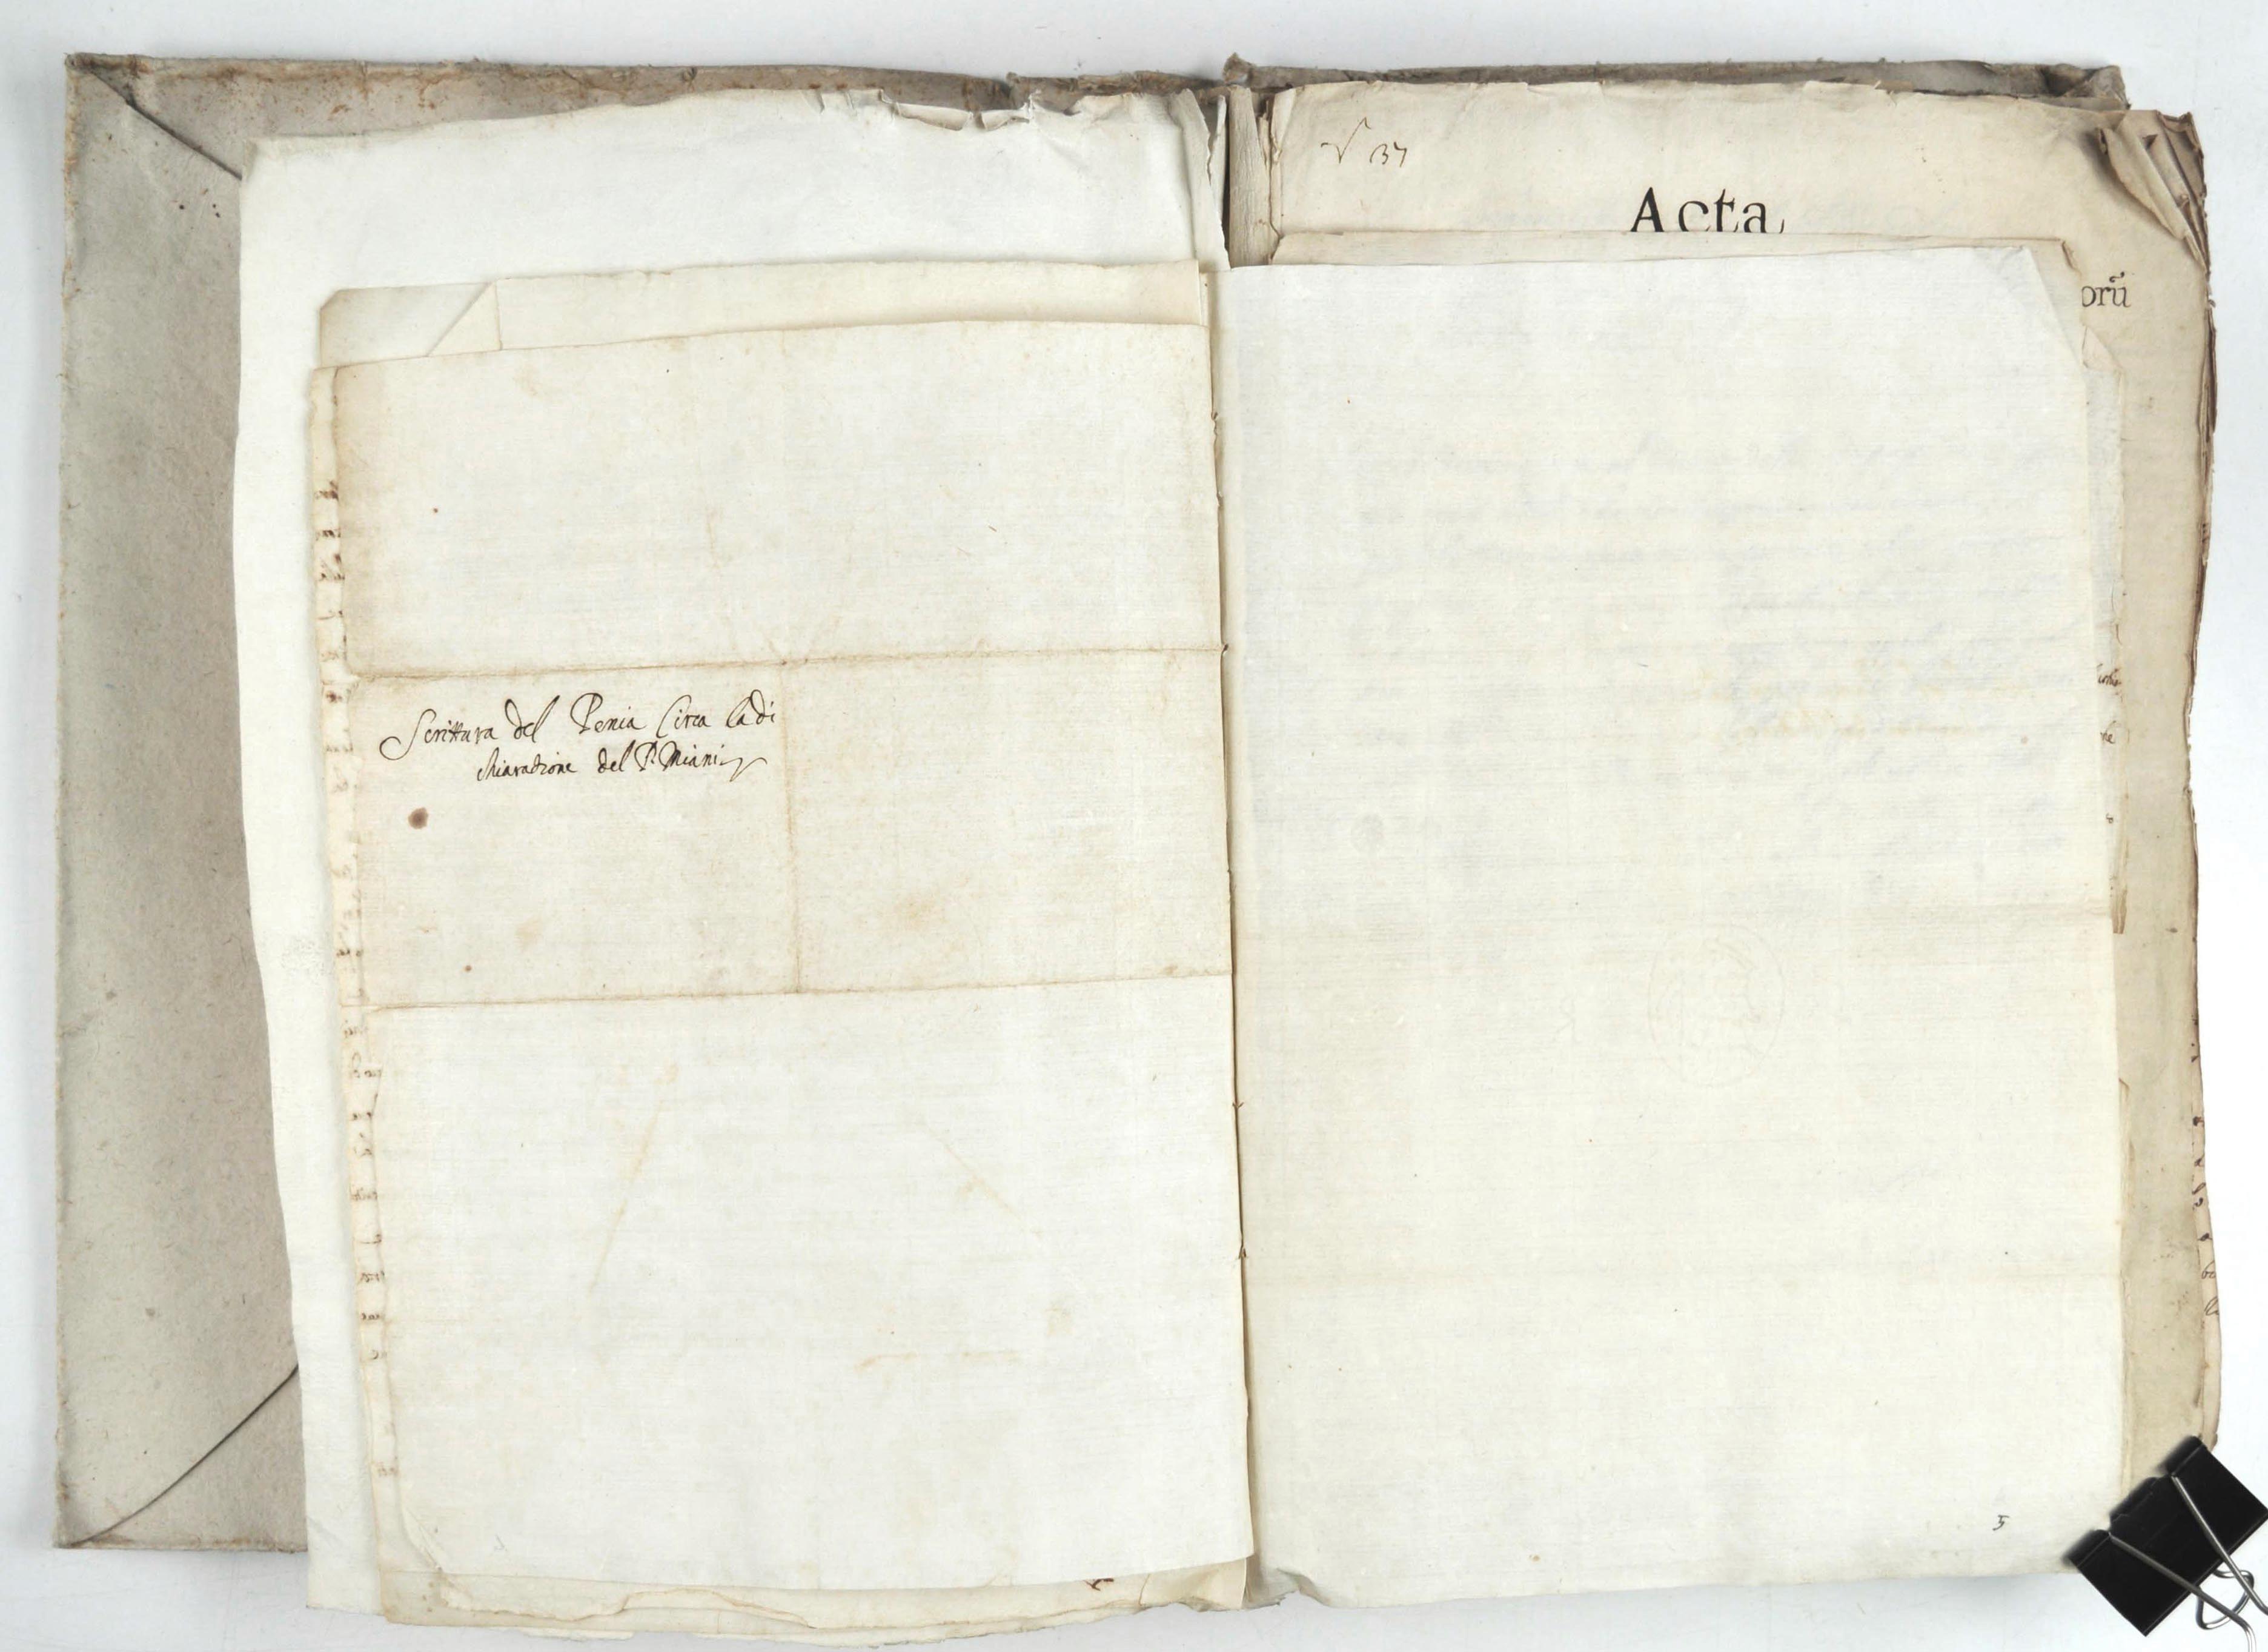 Scrittura del Penia Circa la di
chiaratione del P. Miani
37
Acta
orũ
5